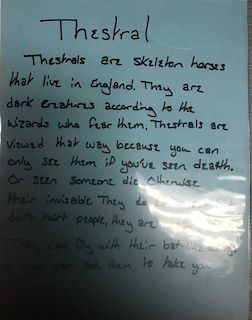 Thestral
Thestrals are Skeleton horses
that live in England. They are
dark creatures according to the
wizards who fear them. Thestrals are
viewed that way because you can
only see them if you've seen death.
Or seen someone die Otherwise
their invisable They do
don't hurt people, they are
They can fly with their bat-like
you can ask them to take you